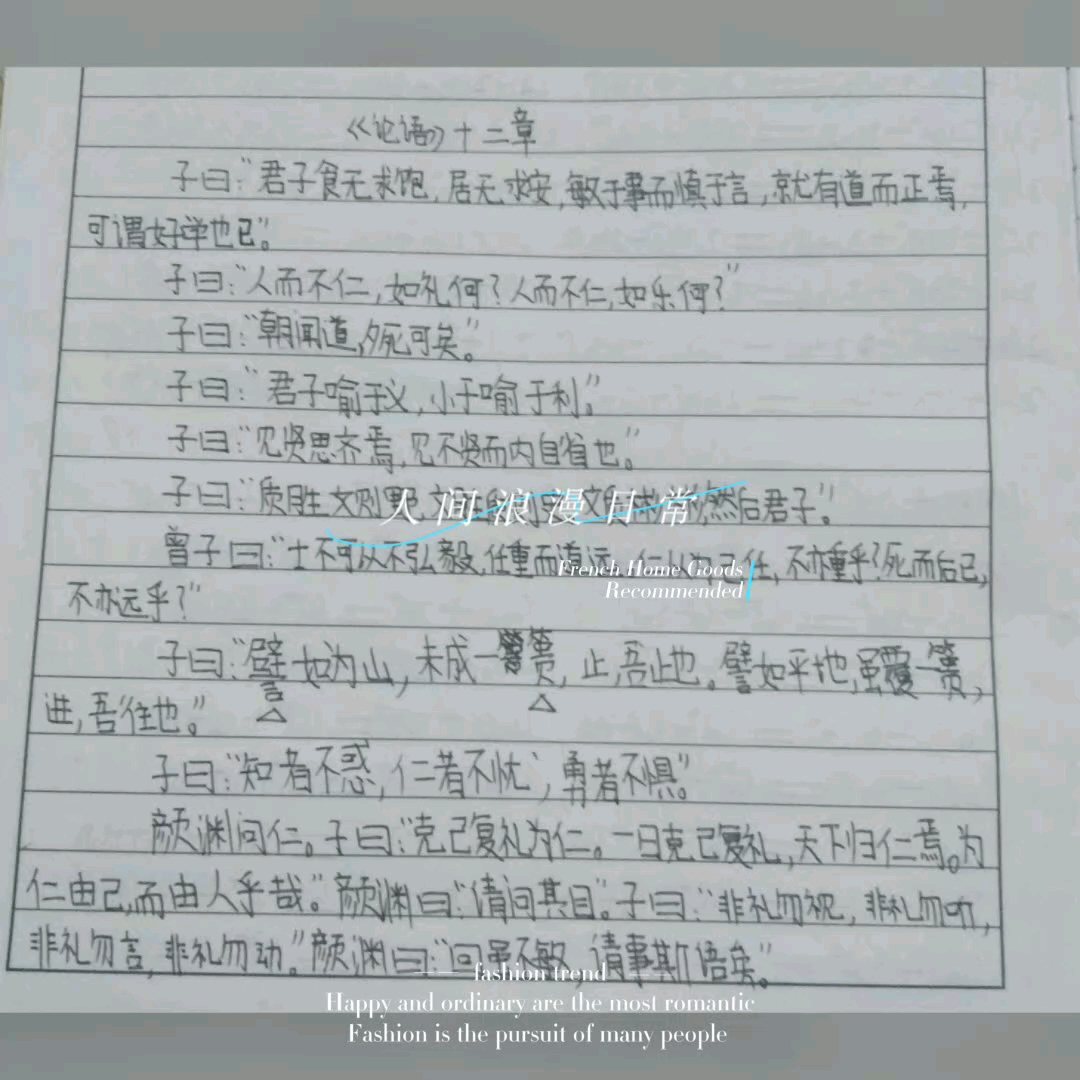 《论语》十二章
子曰：“君子食无求饱，居无求安，敏于事而慎于言，就有道而正焉，
可谓好学也已”。
子曰：“人而不仁，如礼何？人而不仁，如乐何？”
子曰：“朝闻道，夕死可矣。”
子曰：“君子喻于义，小于喻于利”。
子曰：“见贤思齐焉，见不贤而内自省也”。
子曰：“质胜文则野，文 然后君子”！
人间浪漫日常
曾子曰：“士不可以不弘毅，任重而道远。仁以为己任，不亦重乎？死而后已，
French Home Goods
Recommended
不亦远乎？”
子曰：“譬如为山，未成一篑，止，吾止也。譬如平地，虽覆一篑，
进，吾往也。”
子曰：“知者不惑，仁者不忧，勇者不惧”。
颜渊问仁。子曰：“克己复礼为仁。一日克己复礼，天下归仁焉。为
仁由己，而由人乎哉。”颜渊曰：“请问其目”。子曰：“非礼勿视，非礼勿听，
非礼勿言，非礼勿动。”颜渊曰：“回虽不敏，请事斯语矣。”
fashion trend
Happy and ordinary are the most romantic
Fashion is the pursuit of many people